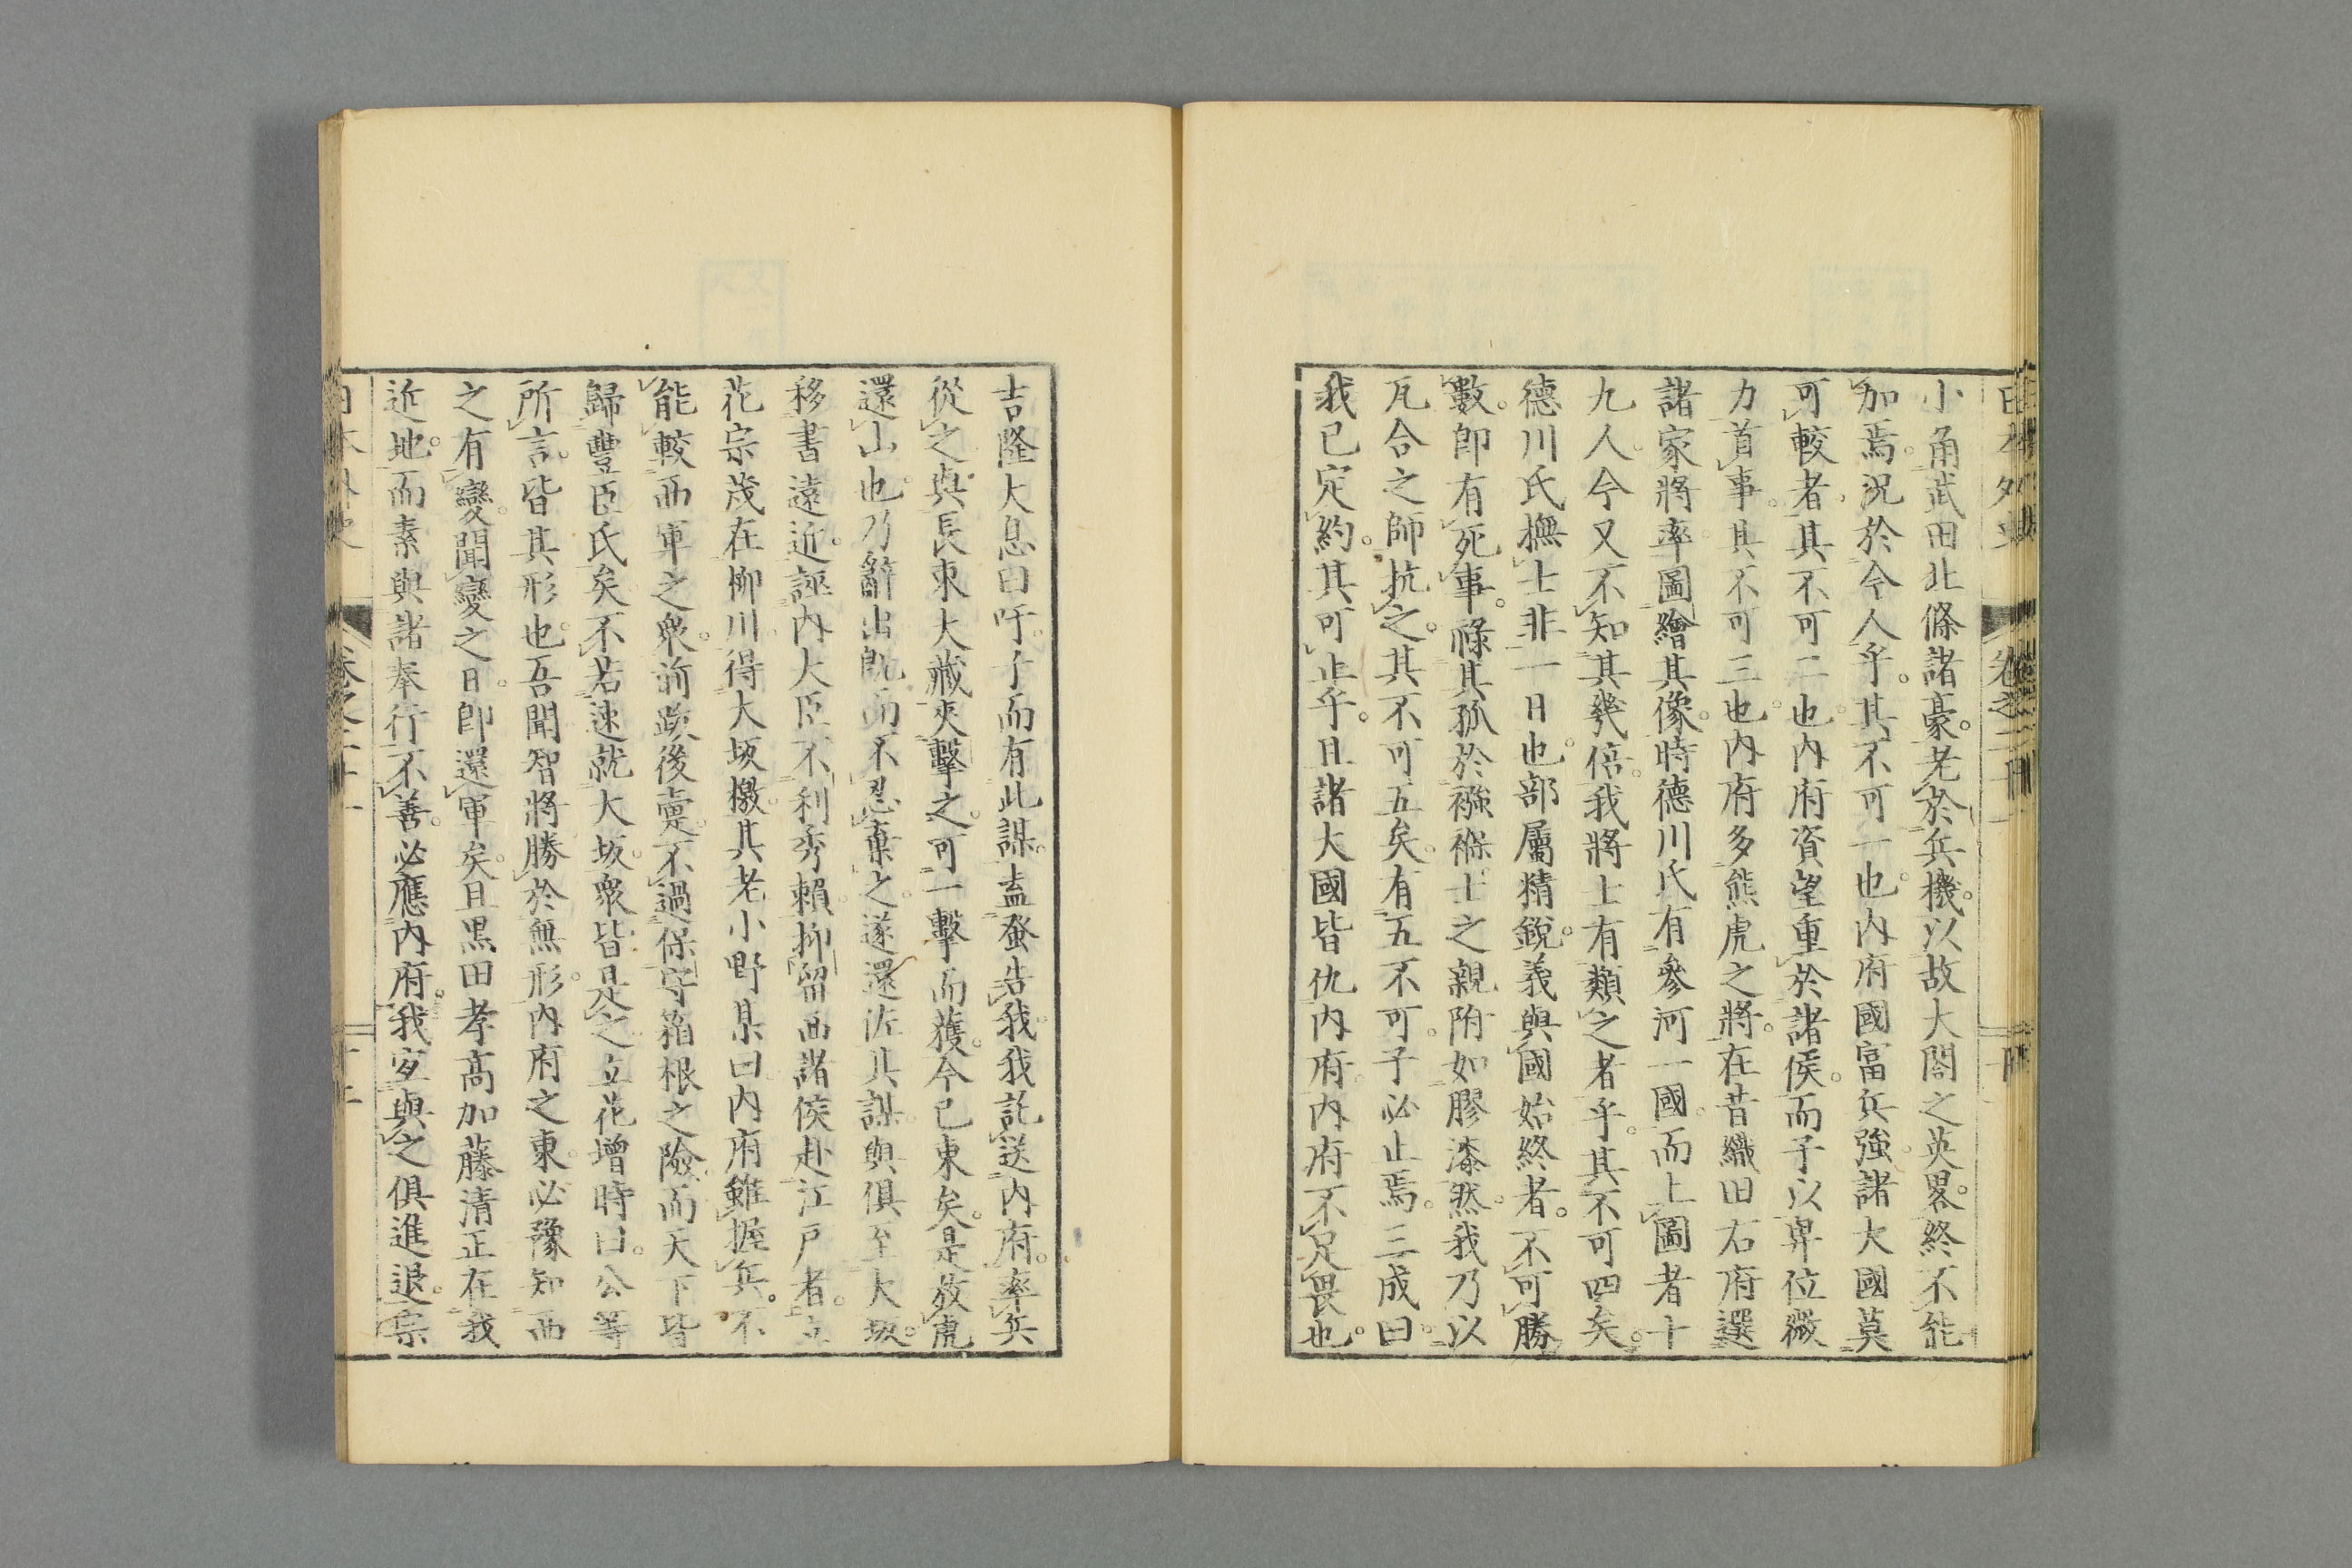 小角武田北條諸豪。老於兵機。以故大閤之英畧。終不能
加焉。況於今人乎。其不可一也。內府國富兵強。諸大國莫
可較者。其不可二也。內府資望重於諸侯。而子以卑位微
力首事。其不可三也。內府多熊虎之將。在昔織田右府選
諸家將率。圖繪其像。時德川氏有參河一國。而上圖者十
九人。今又不知其幾倍。我將士有類之者乎。其不可四矣。
德川氏撫士非一日也。部屬精銳。義與國始終者。不可勝
數。卽有死事。祿其孤於襁褓。士之親附如膠漆然。我乃以
瓦合之師抗之。其不可五矣。有五不可。子必止焉。三成曰。
我已定約。其可止乎。且諸大國皆仇內府。內府不足畏也。
吉隆大息曰。吁。子而有此謀。盍蚤告我。我託送內府。率兵
從之。與長束大藏夾擊之。可一擊而獲。今已東矣。是放虎
還山也。乃辭出。旣而不忍棄之。遂還佐其謀。與俱至大坂。
移書遠近。誣內大臣不利秀賴。抑留西諸侯赴江戶者。立
花宗茂在柳川。得大坂檄。其老小野某曰。內府雖握兵。不
能較西軍之衆。前跋後疐。不過保守箱根之險。而天下皆
歸豐臣氏矣。不若速就大坂。衆皆是之。立花增時曰。公等
所言。皆其形也。吾聞智將勝於無形。內府之東。必豫知西
之有變。聞變之日。卽還軍矣。且黑田孝高加藤清正在我
近地。而素與諸奉行不善。必應內府。我宜與之俱進退。宗